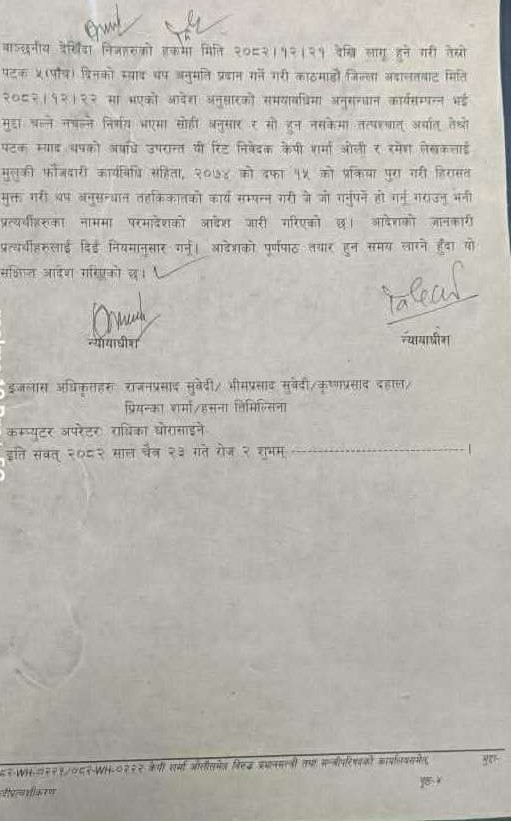 वाञ्छनीय देखिँदा निजहरुको हकमा मिति २०८२।१२।२१ देखि लागू हुने गरी तेस्रो
पटक ५(पाँच) दिनको म्याद थप अनुमति प्रदान गर्ने गरी काठमाडौं जिल्ला अदालतबाट मिति
२०८२।१२।२२ मा भएको आदेश अनुसारको समयावधिमा अनुसन्धान कार्यसम्पन्न भई
मुद्दा चल्ने नचल्ने निर्णय भएमा सोही अनुसार र सो हुन नसकेमा तत्पश्चात् अर्थात् तेस्रो
पटक म्याद थपको अवधि उपरान्त यी रिट निवेदक केपी शर्मा ओली र रमेश लेखकलाई
मुलुकी फौजदारी कार्यविधि संहिता, २०७४ को दफा १५ को प्रक्रिया पुरा गरी हिरासत
मुक्त गरी थप अनुसन्धान तहकिकातको कार्य सम्पन्न गरी जे जो गर्नुपर्ने हो गर्नू गराउनू भनी
प्रत्यर्थीहरुका नाममा परमादेशको आदेश जारी गरिएको छ। आदेशको जानकारी
प्रत्यर्थीहरुलाई दिई नियमानुसार गर्नू। आदेशको पूर्णपाठ तयार हुन समय लाग्ने हुँदा यो
संक्षिप्त आदेश गरिएको छ।
न्यायाधीश
न्यायाधीश
इजलास अधिकृतहरुः राजनप्रसाद सुवेदी/ भीमप्रसाद सुवेदी/कृष्णप्रसाद दहाल/
प्रियन्का शर्मा/हसना तिमिल्सिना
कम्प्युटर अपरेटरः राधिका घोरासाइने
इति संवत् २०८२ साल चैत्र २३ गते रोज २ शुभम् ---------------------------।
८२-WH-०२२१/०८२-WH-०२२२ केपी शर्मा ओलीसमेत विरुद्ध प्रधानमन्त्री तथा मन्त्रीपरिषद्को कार्यालयसमेत, मुद्दा-
बन्दीप्रत्यक्षीकरण
पृष्ठ-५